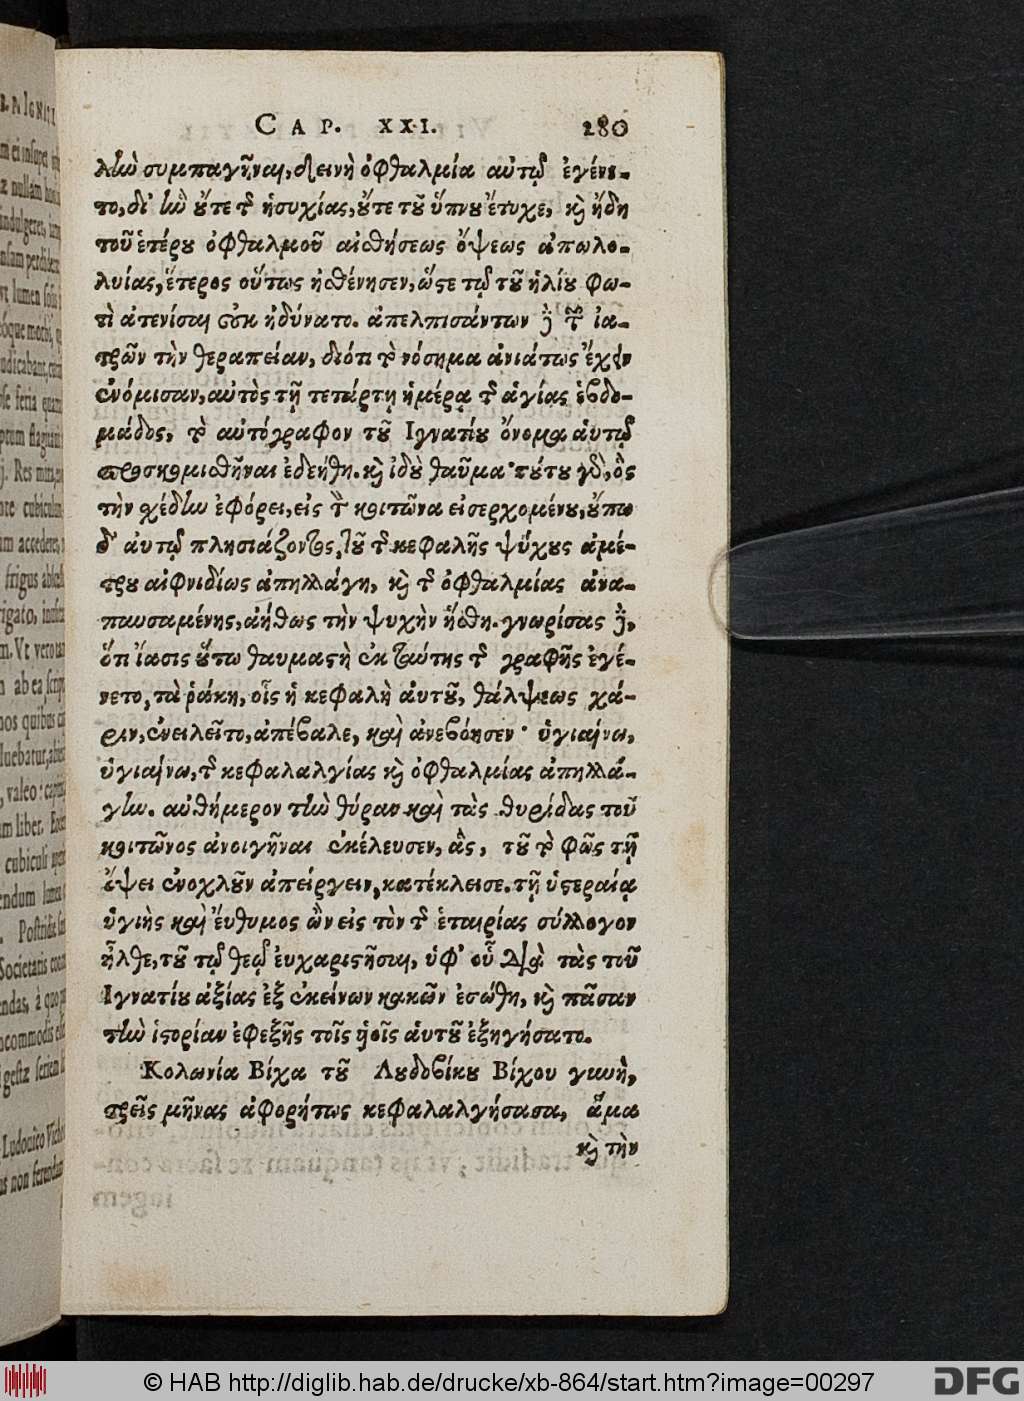 CAP. XXI. 280
λὴν συμπαγῆναι, δεινὴ ὀφθαλμία αὐτῷ ἐγένε-
το, δι' ἣν οὔτε τῆς ἡσυχίας, οὔτε τοῦ ὕπνου ἔτυχε, καὶ ἤδη
τοῦ ἑτέρου ὀφθαλμοῦ αἰσθήσεως ὄψεως ἀπωλο-
λυίας, ἕτερος οὕτως ἠσθένησεν, ὥστε τῷ τοῦ ἡλίου φω-
τὶ ἀτενίσαι οὐκ ἠδύνατο. ἀπελπισάντων δὲ τῶν ἰα-
τρῶν τὴν θεραπείαν, διότι τὸ νόσημα ἀνιάτως ἔχειν
ἐνόμισαν, αὐτὸς τῇ τετάρτῃ ἡμέρᾳ τῆς ἁγίας ἑβδο-
μάδος, τὸ αὐτόγραφον τοῦ Ἰγνατίου ὄνομα αὑτῷ
προσκομισθῆναι ἐδεήθη. καὶ ἰδοὺ θαῦμα· τούτου γὰρ, ὃς
τὴν χέδην ἐφόρει, εἰς τὸν κοιτῶνα εἰσερχομένου, οὔπω
δ' αὐτῷ πλησιάζοντος, τοῦ τῆς κεφαλῆς ψύχους ἀμέ-
τρου αἰφνιδίως ἀπηλλάγη, καὶ τῆς ὀφθαλμίας ἀνα-
παυσαμένης, ἀήθως τὴν ψυχὴν ἥσθη. γνωρίσας δὲ,
ὅτι ἴασις οὕτω θαυμαστὴ ἐκ ταύτης τῆς γραφῆς ἐγέ-
νετο, τὰ ῥάκη, οἷς ἡ κεφαλὴ αὐτοῦ, θάλψεως χά-
ριν, ἐνειλεῖτο, ἀπέβαλε, καὶ ἀνεβόησεν· ὑγιαίνω,
ὑγιαίνω, τῆς κεφαλαλγίας καὶ ὀφθαλμίας ἀπηλλά-
γην. αὐθήμερον τὴν θύραν καὶ τὰς θυρίδας τοῦ
κοιτῶνος ἀνοιγῆναι ἐκέλευσεν, ἃς, τοῦ τὸ φῶς τῇ
ὄψει ἐνοχλοῦν ἀπείργειν, κατέκλεισε. τῇ ὑστεραίᾳ
ὑγιὴς καὶ ἔυθυμος ὢν εἰς τὸν τῆς ἑταιρίας σύλλογον
ἦλθε, τοῦ τῷ θεῷ ἐυχαριστῆσαι, ὑφ' οὗ διὰ τὰς τοῦ
Ἰγνατίου ἀξίας ἐξ ἐκείνων κακῶν ἐσώθη, καὶ πᾶσαν
τὴν ἱστορίαν ἐφεξῆς τοῖς υἱοῖς αὑτοῦ ἐξηγήσατο.
Κολωνία Βίχα τοῦ Λυδοβίκου Βίχου γυνὴ,
τρεῖς μῆνας ἀφορήτως κεφαλαλγήσασα, ἅμα
καὶ τὴν
© HAB http://diglib.hab.de/drucke/xb-864/start.htm?image=00297
DFG